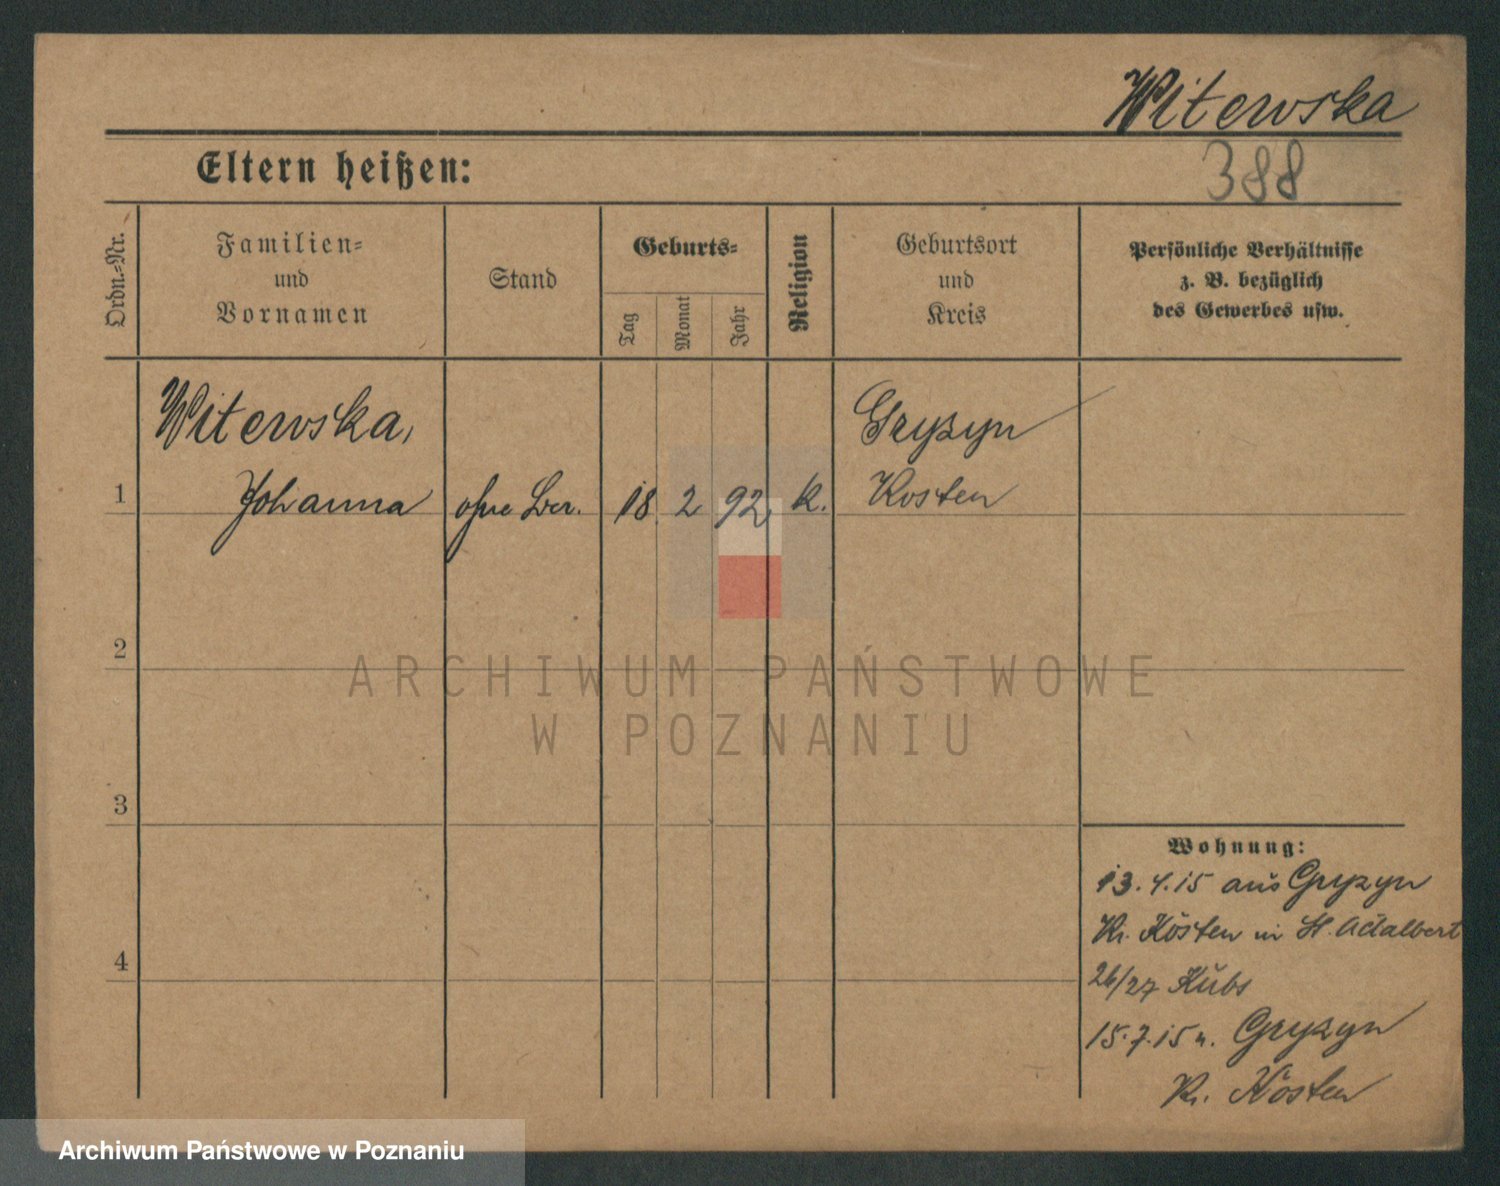 Witewska
Eltern heißen:
388
Ordn.-Nr.
Familien-
und
Vornamen
Stand
Geburts-
Tag
Monat
Jahr
Religion
Geburtsort
und
Kreis
Persönliche Verhältnisse
z. B. bezüglich
des Gewerbes usw.
Witewska,
Gryzyn
1
Johanna
ohne
18
2
92
k.
Kosten
2
ARCHIWUM PAŃSTWOWE
W POZNANIU
3
Wohnung:
13.4.15 aus Gryzyn
Kr. Kosten in St. Adalbert
4
26/27 Kubs
15.7.15 n. Gryzyn
Kr. Kosten
Archiwum Państwowe w Poznaniu